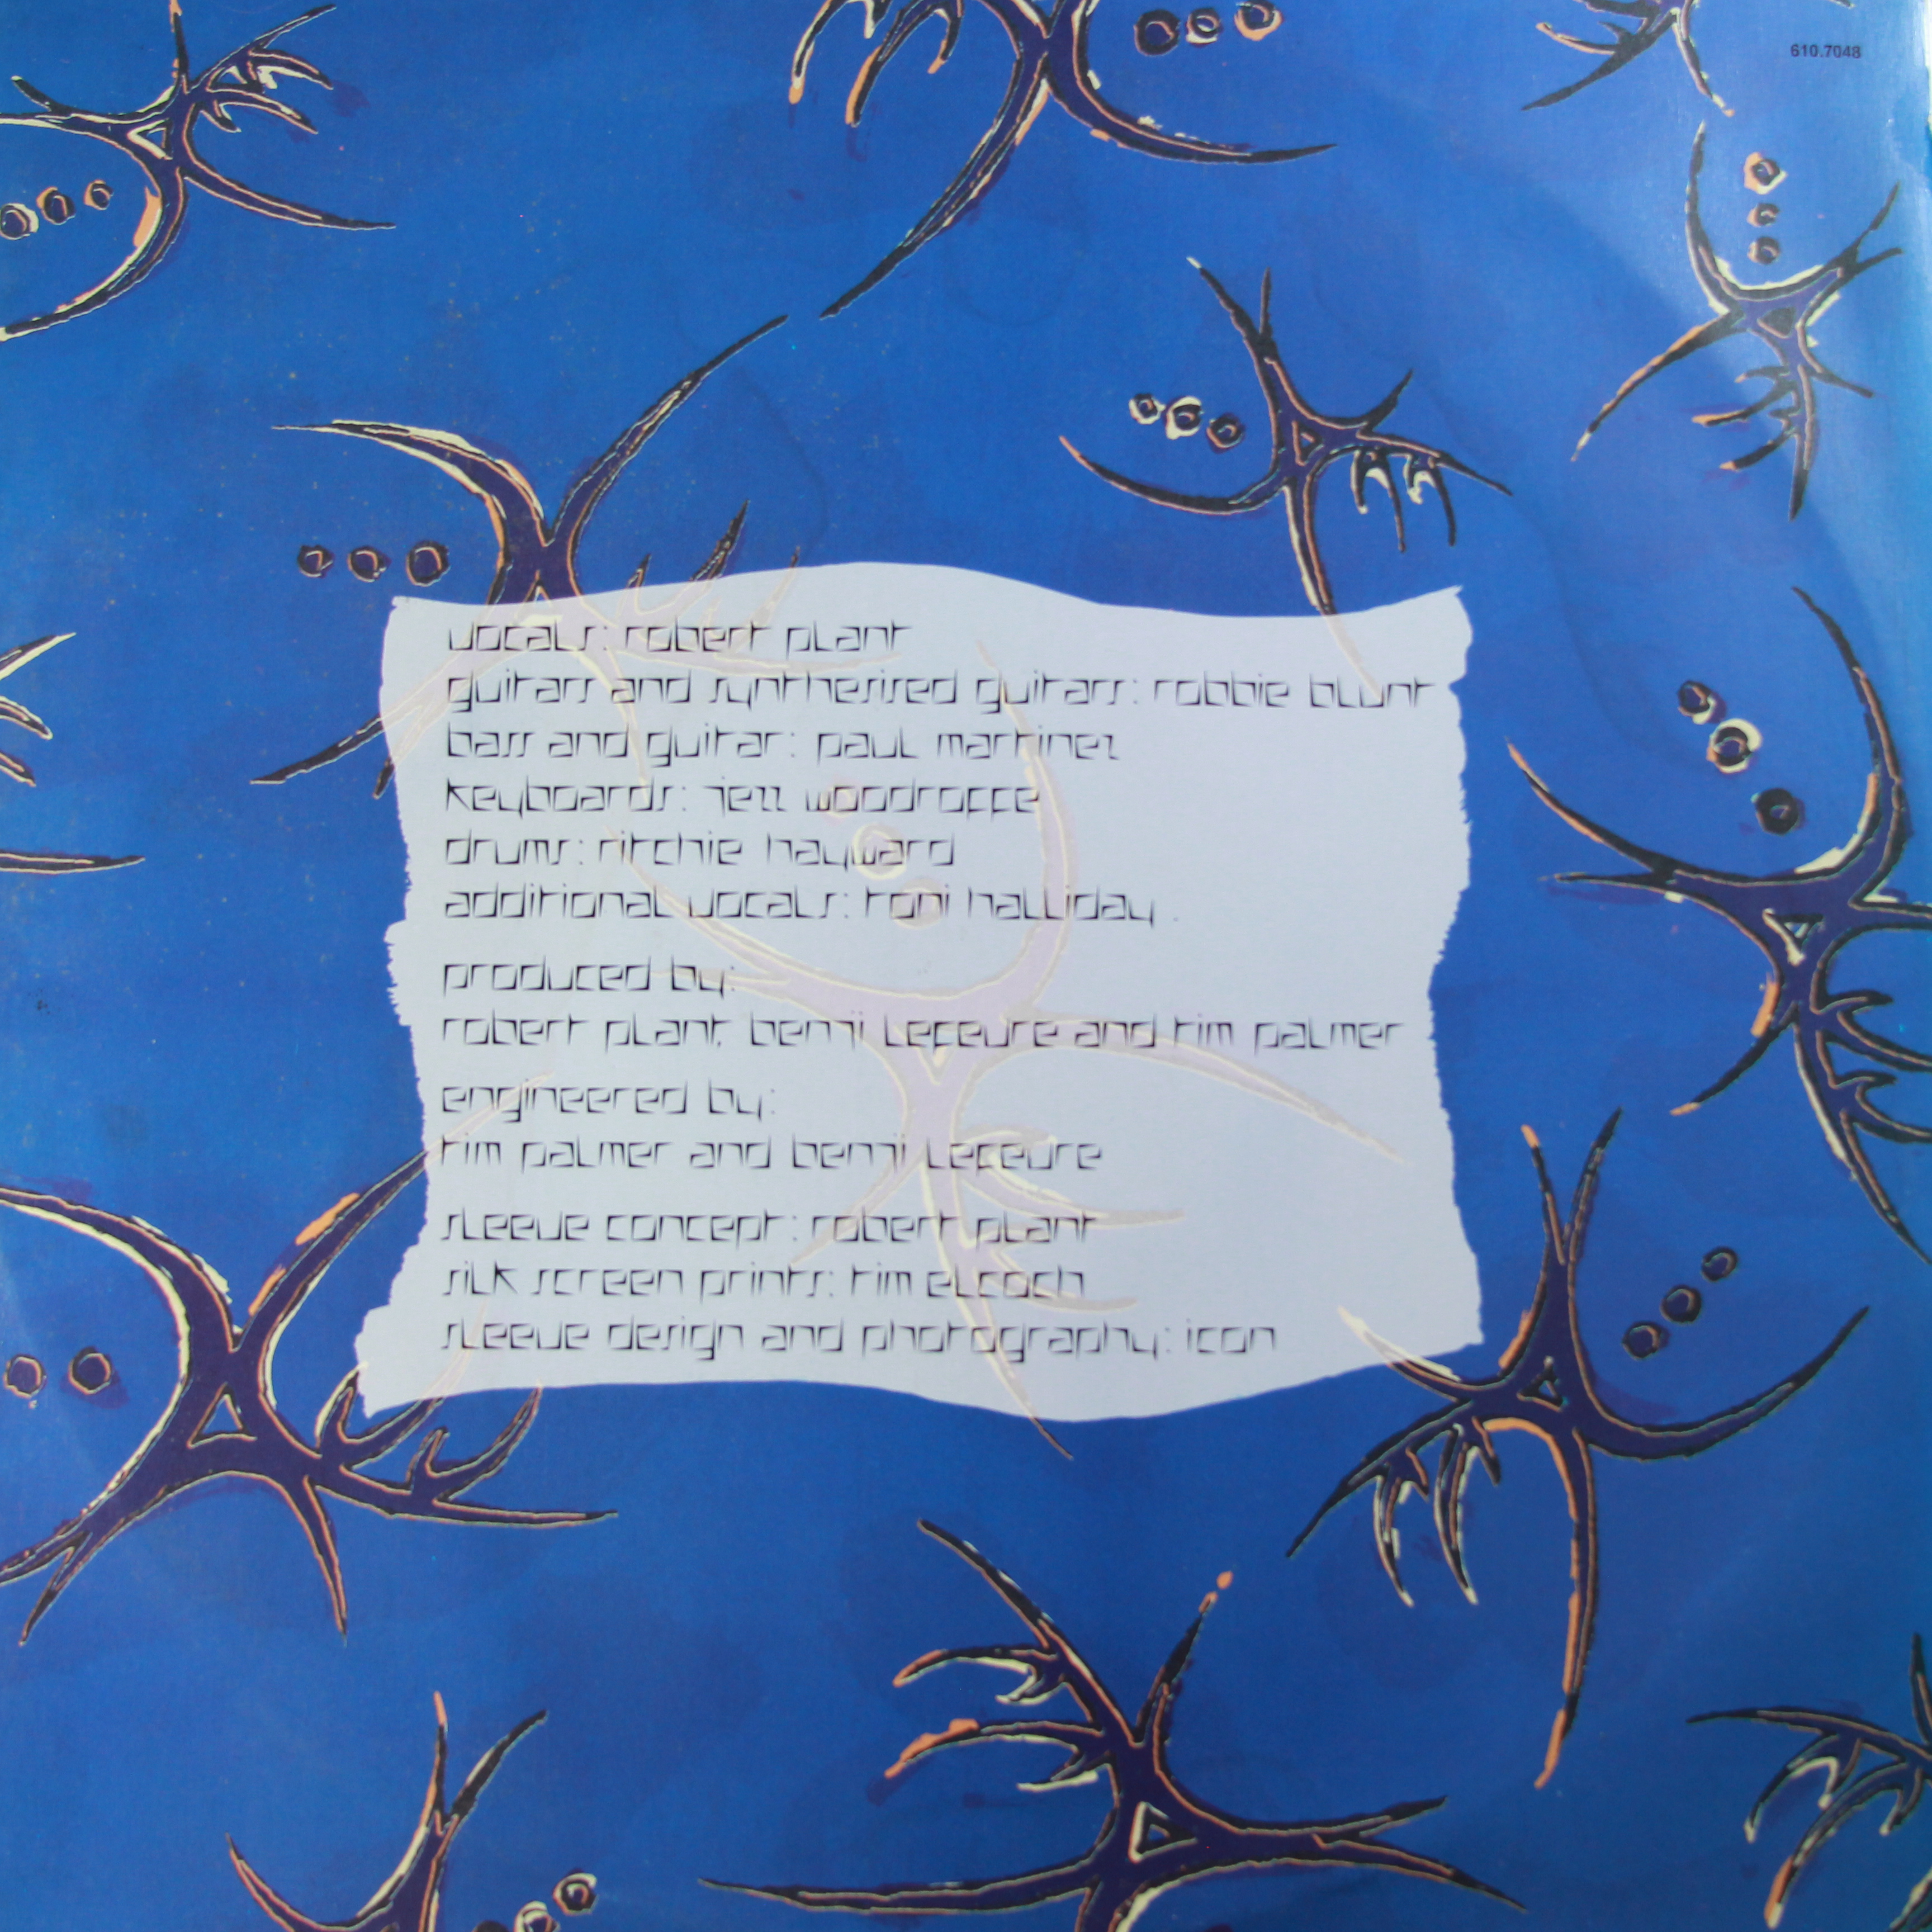 610.7048
vocals: robert plant
guitars and synthesised guitars: robbie blunt
bass and guitar: paul martinez
keyboards: jezz woodroffe
drums: ritchie hayward
additional vocals: toni halliday .
produced by:
robert plant, benji lefevre and tim palmer
engineered by:
tim palmer and benji lefevre
sleeve concept: robert plant
silk screen prints: tim elcoch
sleeve design and photography: icon